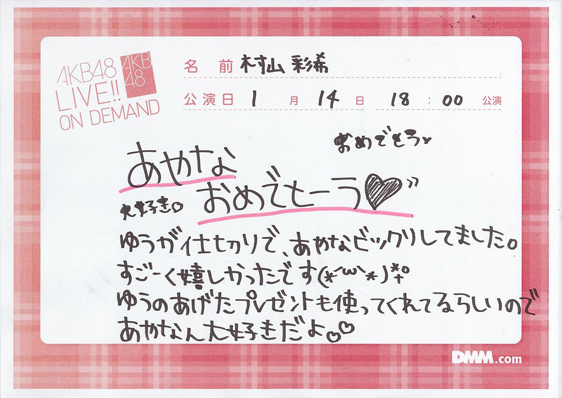 AKB48
LIVE!!
ON DEMAND
AKB
48
名 前 村山 彩希
公演日 1 月 14 日 18 : 00 公演
おめでとう
あやな
大好き
おめでとーう♥
ゆうが仕切りで、あやなビックリしてました。
すごーく嬉しかったです(*´ω`*)
ゆうのあげたプレゼントも使ってくれてるらしいので
あやなん大好きだよ♡♡
DMM.com